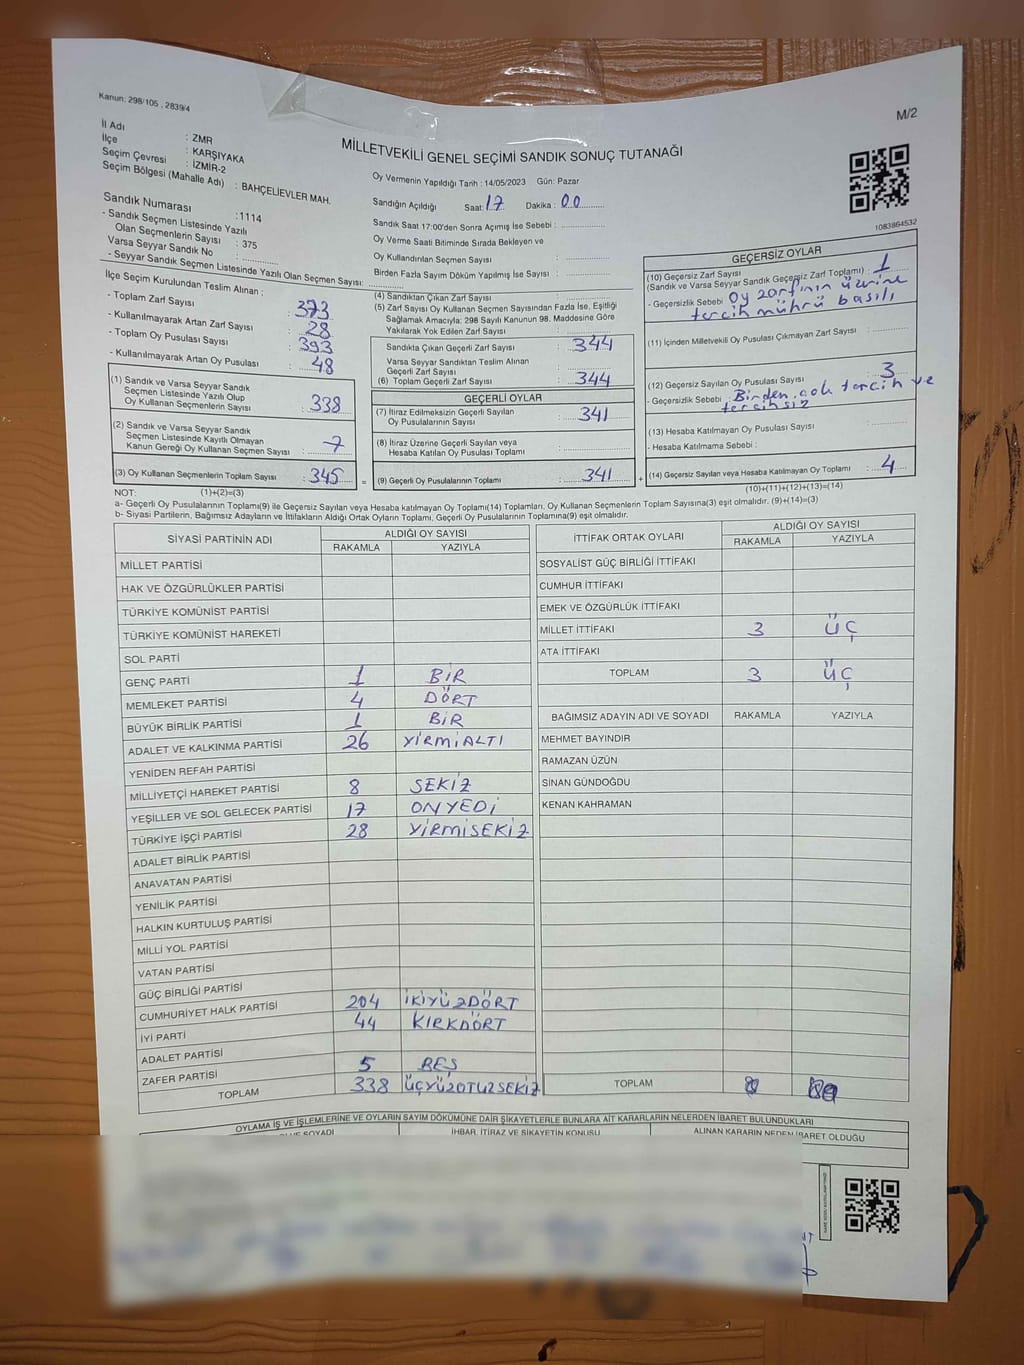 Kanun: 298/105 , 2839/4
M/2
İl Adı : ZMR
İlçe : KARŞIYAKA
Seçim Çevresi : İZMİR-2
Seçim Bölgesi (Mahalle Adı) : BAHÇELİEVLER MAH.
MİLLETVEKİLİ GENEL SEÇİMİ SANDIK SONUÇ TUTANAĞI
Oy Vermenin Yapıldığı Tarih : 14/05/2023 Gün: Pazar
Sandığın Açıldığı Saat: 17 Dakika : 00
Sandık Saat 17:00'den Sonra Açımış İse Sebebi :
Oy Verme Saati Bitiminde Sırada Bekleyen ve
Oy Kullandırılan Seçmen Sayısı :
Birden Fazla Sayım Döküm Yapılmış İse Sayısı :
1083864532
Sandık Numarası : 1114
- Sandık Seçmen Listesinde Yazılı
Olan Seçmenlerin Sayısı : 375
Varsa Seyyar Sandık No :
- Seyyar Sandık Seçmen Listesinde Yazılı Olan Seçmen Sayısı:
İlçe Seçim Kurulundan Teslim Alınan :
- Toplam Zarf Sayısı : 373
- Kullanılmayarak Artan Zarf Sayısı : 28
- Toplam Oy Pusulası Sayısı : 393
- Kullanılmayarak Artan Oy Pusulası : 48
(1) Sandık ve Varsa Seyyar Sandık
Seçmen Listesinde Yazılı Olup
Oy Kullanan Seçmenlerin Sayısı : 338
(2) Sandık ve Varsa Seyyar Sandık
Seçmen Listesinde Kayıtlı Olmayan
Kanun Gereği Oy Kullanan Seçmen Sayısı : 7
(3) Oy Kullanan Seçmenlerin Toplam Sayısı : 345 =
(4) Sandıktan Çıkan Zarf Sayısı :
(5) Zarf Sayısı Oy Kullanan Seçmen Sayısından Fazla İse, Eşitliği
Sağlamak Amacıyla; 298 Sayılı Kanunun 98. Maddesine Göre
Yakılarak Yok Edilen Zarf Sayısı :
Sandıkta Çıkan Geçerli Zarf Sayısı : 344
Varsa Seyyar Sandıktan Teslim Alınan
Geçerli Zarf Sayısı :
(6) Toplam Geçerli Zarf Sayısı : 344
GEÇERLİ OYLAR
(7) İtiraz Edilmeksizin Geçerli Sayılan
Oy Pusulalarının Sayısı : 341
(8) İtiraz Üzerine Geçerli Sayılan veya
Hesaba Katılan Oy Pusulası Toplamı :
(9) Geçerli Oy Pusulalarının Toplamı : 341 +
GEÇERSİZ OYLAR
(10) Geçersiz Zarf Sayısı
(Sandık ve Varsa Seyyar Sandık Geçersiz Zarf Toplamı) : 1
- Geçersizlik Sebebi : Oy zarfının üzerine
tercih mührü basılı
(11) İçinden Milletvekili Oy Pusulası Çıkmayan Zarf Sayısı :
(12) Geçersiz Sayılan Oy Pusulası Sayısı : 3
- Geçersizlik Sebebi : Birden çok tercih ve
tercihsiz
(13) Hesaba Katılmayan Oy Pusulası Sayısı :
- Hesaba Katılmama Sebebi :
(14) Geçersiz Sayılan veya Hesaba Katılmayan Oy Toplamı : 4
NOT: (1)+(2)=(3)
(10)+(11)+(12)+(13)=(14)
a- Geçerli Oy Pusulalarının Toplamı(9) ile Geçersiz Sayılan veya Hesaba katılmayan Oy Toplamı(14) Toplamları, Oy Kullanan Seçmenlerin Toplam Sayısına(3) eşit olmalıdır. (9)+(14)=(3)
b- Siyasi Partilerin, Bağımsız Adayların ve İttifakların Aldığı Ortak Oyların Toplamı, Geçerli Oy Pusulalarının Toplamına(9) eşit olmalıdır.
SİYASİ PARTİNİN ADI ALDIĞI OY SAYISI
RAKAMLA YAZIYLA
MİLLET PARTİSİ
HAK VE ÖZGÜRLÜKLER PARTİSİ
TÜRKİYE KOMÜNİST PARTİSİ
TÜRKİYE KOMÜNİST HAREKETİ
SOL PARTİ
GENÇ PARTİ 1 BİR
MEMLEKET PARTİSİ 4 DÖRT
BÜYÜK BİRLİK PARTİSİ 1 BİR
ADALET VE KALKINMA PARTİSİ 26 YİRMİALTI
YENİDEN REFAH PARTİSİ
MİLLİYETÇİ HAREKET PARTİSİ 8 SEKİZ
YEŞİLLER VE SOL GELECEK PARTİSİ 17 ONYEDİ
TÜRKİYE İŞÇİ PARTİSİ 28 YİRMİSEKİZ
ADALET BİRLİK PARTİSİ
ANAVATAN PARTİSİ
YENİLİK PARTİSİ
HALKIN KURTULUŞ PARTİSİ
MİLLİ YOL PARTİSİ
VATAN PARTİSİ
GÜÇ BİRLİĞİ PARTİSİ
CUMHURİYET HALK PARTİSİ 204 İKİYÜZDÖRT
İYİ PARTİ 44 KIRKDÖRT
ADALET PARTİSİ
ZAFER PARTİSİ 5 BEŞ
TOPLAM 338 ÜÇYÜZOTUZSEKİZ
İTTİFAK ORTAK OYLARI ALDIĞI OY SAYISI
RAKAMLA YAZIYLA
SOSYALİST GÜÇ BİRLİĞİ İTTİFAKI
CUMHUR İTTİFAKI
EMEK VE ÖZGÜRLÜK İTTİFAKI
MİLLET İTTİFAKI 3 ÜÇ
ATA İTTİFAKI
TOPLAM 3 ÜÇ
BAĞIMSIZ ADAYIN ADI VE SOYADI RAKAMLA YAZIYLA
MEHMET BAYINDIR
RAMAZAN ÜZÜN
SİNAN GÜNDOĞDU
KENAN KAHRAMAN
TOPLAM
OYLAMA İŞ VE İŞLEMLERİNE VE OYLARIN SAYIM DÖKÜMÜNE DAİR ŞİKAYETLERLE BUNLARA AİT KARARLARIN NELERDEN İBARET BULUNDUKLARI
SOYADI İHBAR, İTİRAZ VE ŞİKAYETİN KONUSU ALINAN KARARIN NEDEN İBARET OLDUĞU